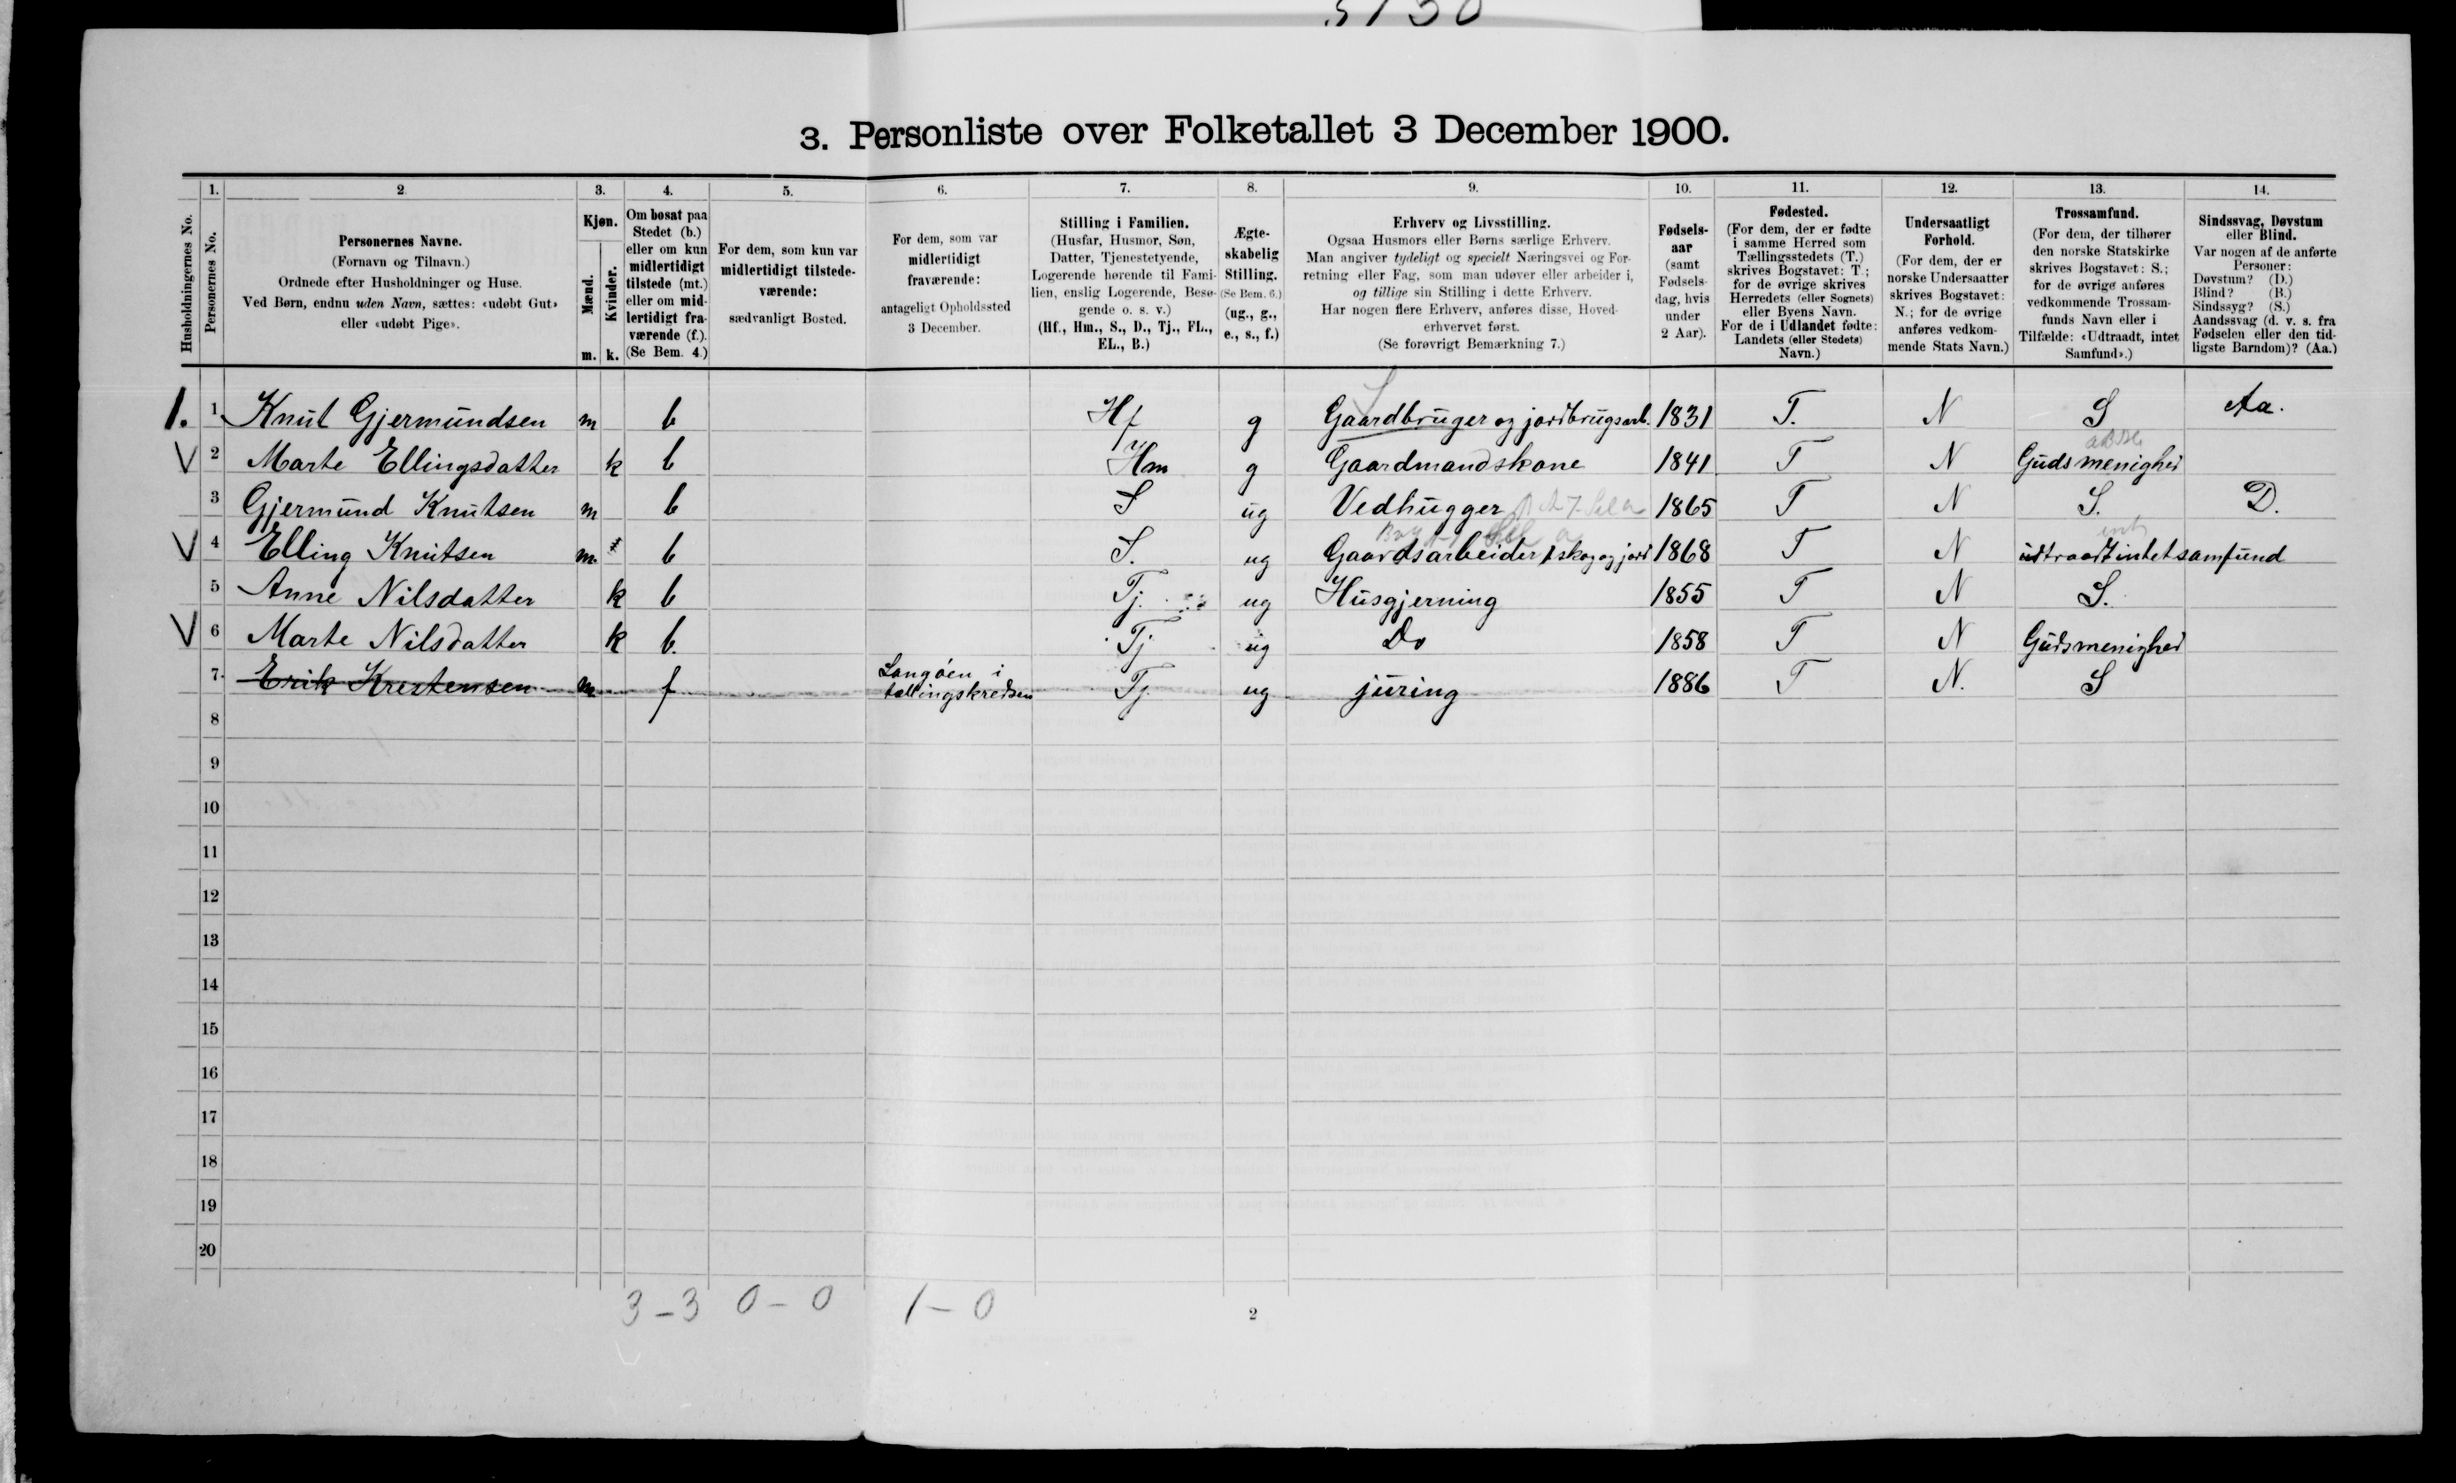 3130
3. Personliste over Folketallet 3 December 1900.
1. 2. 3. 4. 5. 6. 7. 8. 9. 10. 11. 12. 13. 14.
Husholdningernes No.
Personernes No.
Personernes Navne.
(Fornavn og Tilnavn.)
Ordnede efter Husholdninger og Huse.
Ved Børn, endnu uden Navn, sættes: «udøbt Gut»
eller «udøbt Pige».
Kjøn.
Mænd.
Kvinder.
m. k.
Om bosat paa
Stedet (b.)
eller om kun
midlertidigt
tilstede (mt.)
eller om mid-
lertidigt fra-
værende (f.).
(Se Bem. 4.)
For dem, som kun var
midlertidigt tilstede-
værende:
sædvanligt Bosted.
For dem, som var
midlertidigt
fraværende:
antageligt Opholdssted
3 December.
Stilling i Familien.
(Husfar, Husmor, Søn,
Datter, Tjenestetyende,
Logerende hørende til Fami-
lien, enslig Logerende, Besø-
gende o. s. v.)
(Hf., Hm., S., D., Tj., FL.,
EL., B.)
Ægte-
skabelig
Stilling.
(Se Bem. 6.)
(ug., g.,
e., s., f.)
Erhverv og Livsstilling.
Ogsaa Husmors eller Børns særlige Erhverv.
Man angiver tydeligt og specielt Næringsvei og For-
retning eller Fag, som man udøver eller arbeider i,
og tillige sin Stilling i dette Erhverv.
Har nogen flere Erhverv, anføres disse, Hoved-
erhvervet først.
(Se forøvrigt Bemærkning 7.)
Fødsels-
aar
(samt
Fødsels-
dag, hvis
under
2 Aar).
Fødested.
(For dem, der er fødte
i samme Herred som
Tællingsstedets (T.)
skrives Bogstavet: T.;
for de øvrige skrives
Herredets (eller Sognets)
eller Byens Navn.
For de i Udlandet fødte:
Landets (eller Stedets)
Navn.)
Undersaatligt
Forhold.
(For dem, der er
norske Undersaatter
skrives Bogstavet:
N.; for de øvrige
anføres vedkom-
mende Stats Navn.)
Trossamfund.
(For dem, der tilhører
den norske Statskirke
skrives Bogstavet: S.;
for de øvrige anføres
vedkommende Trossam-
funds Navn eller i
Tilfælde: «Udtraadt, intet
Samfund».)
Sindssvag, Døvstum
eller Blind.
Var nogen af de anførte
Personer:
Døvstum? (D.)
Blind? (B.)
Sindssyg? (S.)
Aandssvag (d. v. s. fra
Fødselen eller den tid-
ligste Barndom)? (Aa.)
1. 1 Knut Gjermundsen m b Hf g Gaardbruger og jordbrugsarb. 1831 T. N S Aa.
V 2 Marte Ellingsdatter k b Hm g Gaardmandskone 1841 T N Guds menighed
3 Gjermund Knutsen m b S ug Vedhugger 1865 T N S. D.
V 4 Elling Knutsen m. b S. ug Gaardsarbeider i skog og jord 1868 T N udtraadt intet samfund
5 Anne Nilsdatter k b Tj. ug Husgjerning 1855 T N S.
V 6 Marte Nilsdatter k b. Tj. ug Do 1858 T N Gudsmenighed
7. Erik Kristensen m f Langøen i
tællingskredsen Tj. ug juring 1886 T N. S
8
9
10
11
12
13
14
15
16
17
18
19
20
3 - 3 0 - 0 1 - 0
2